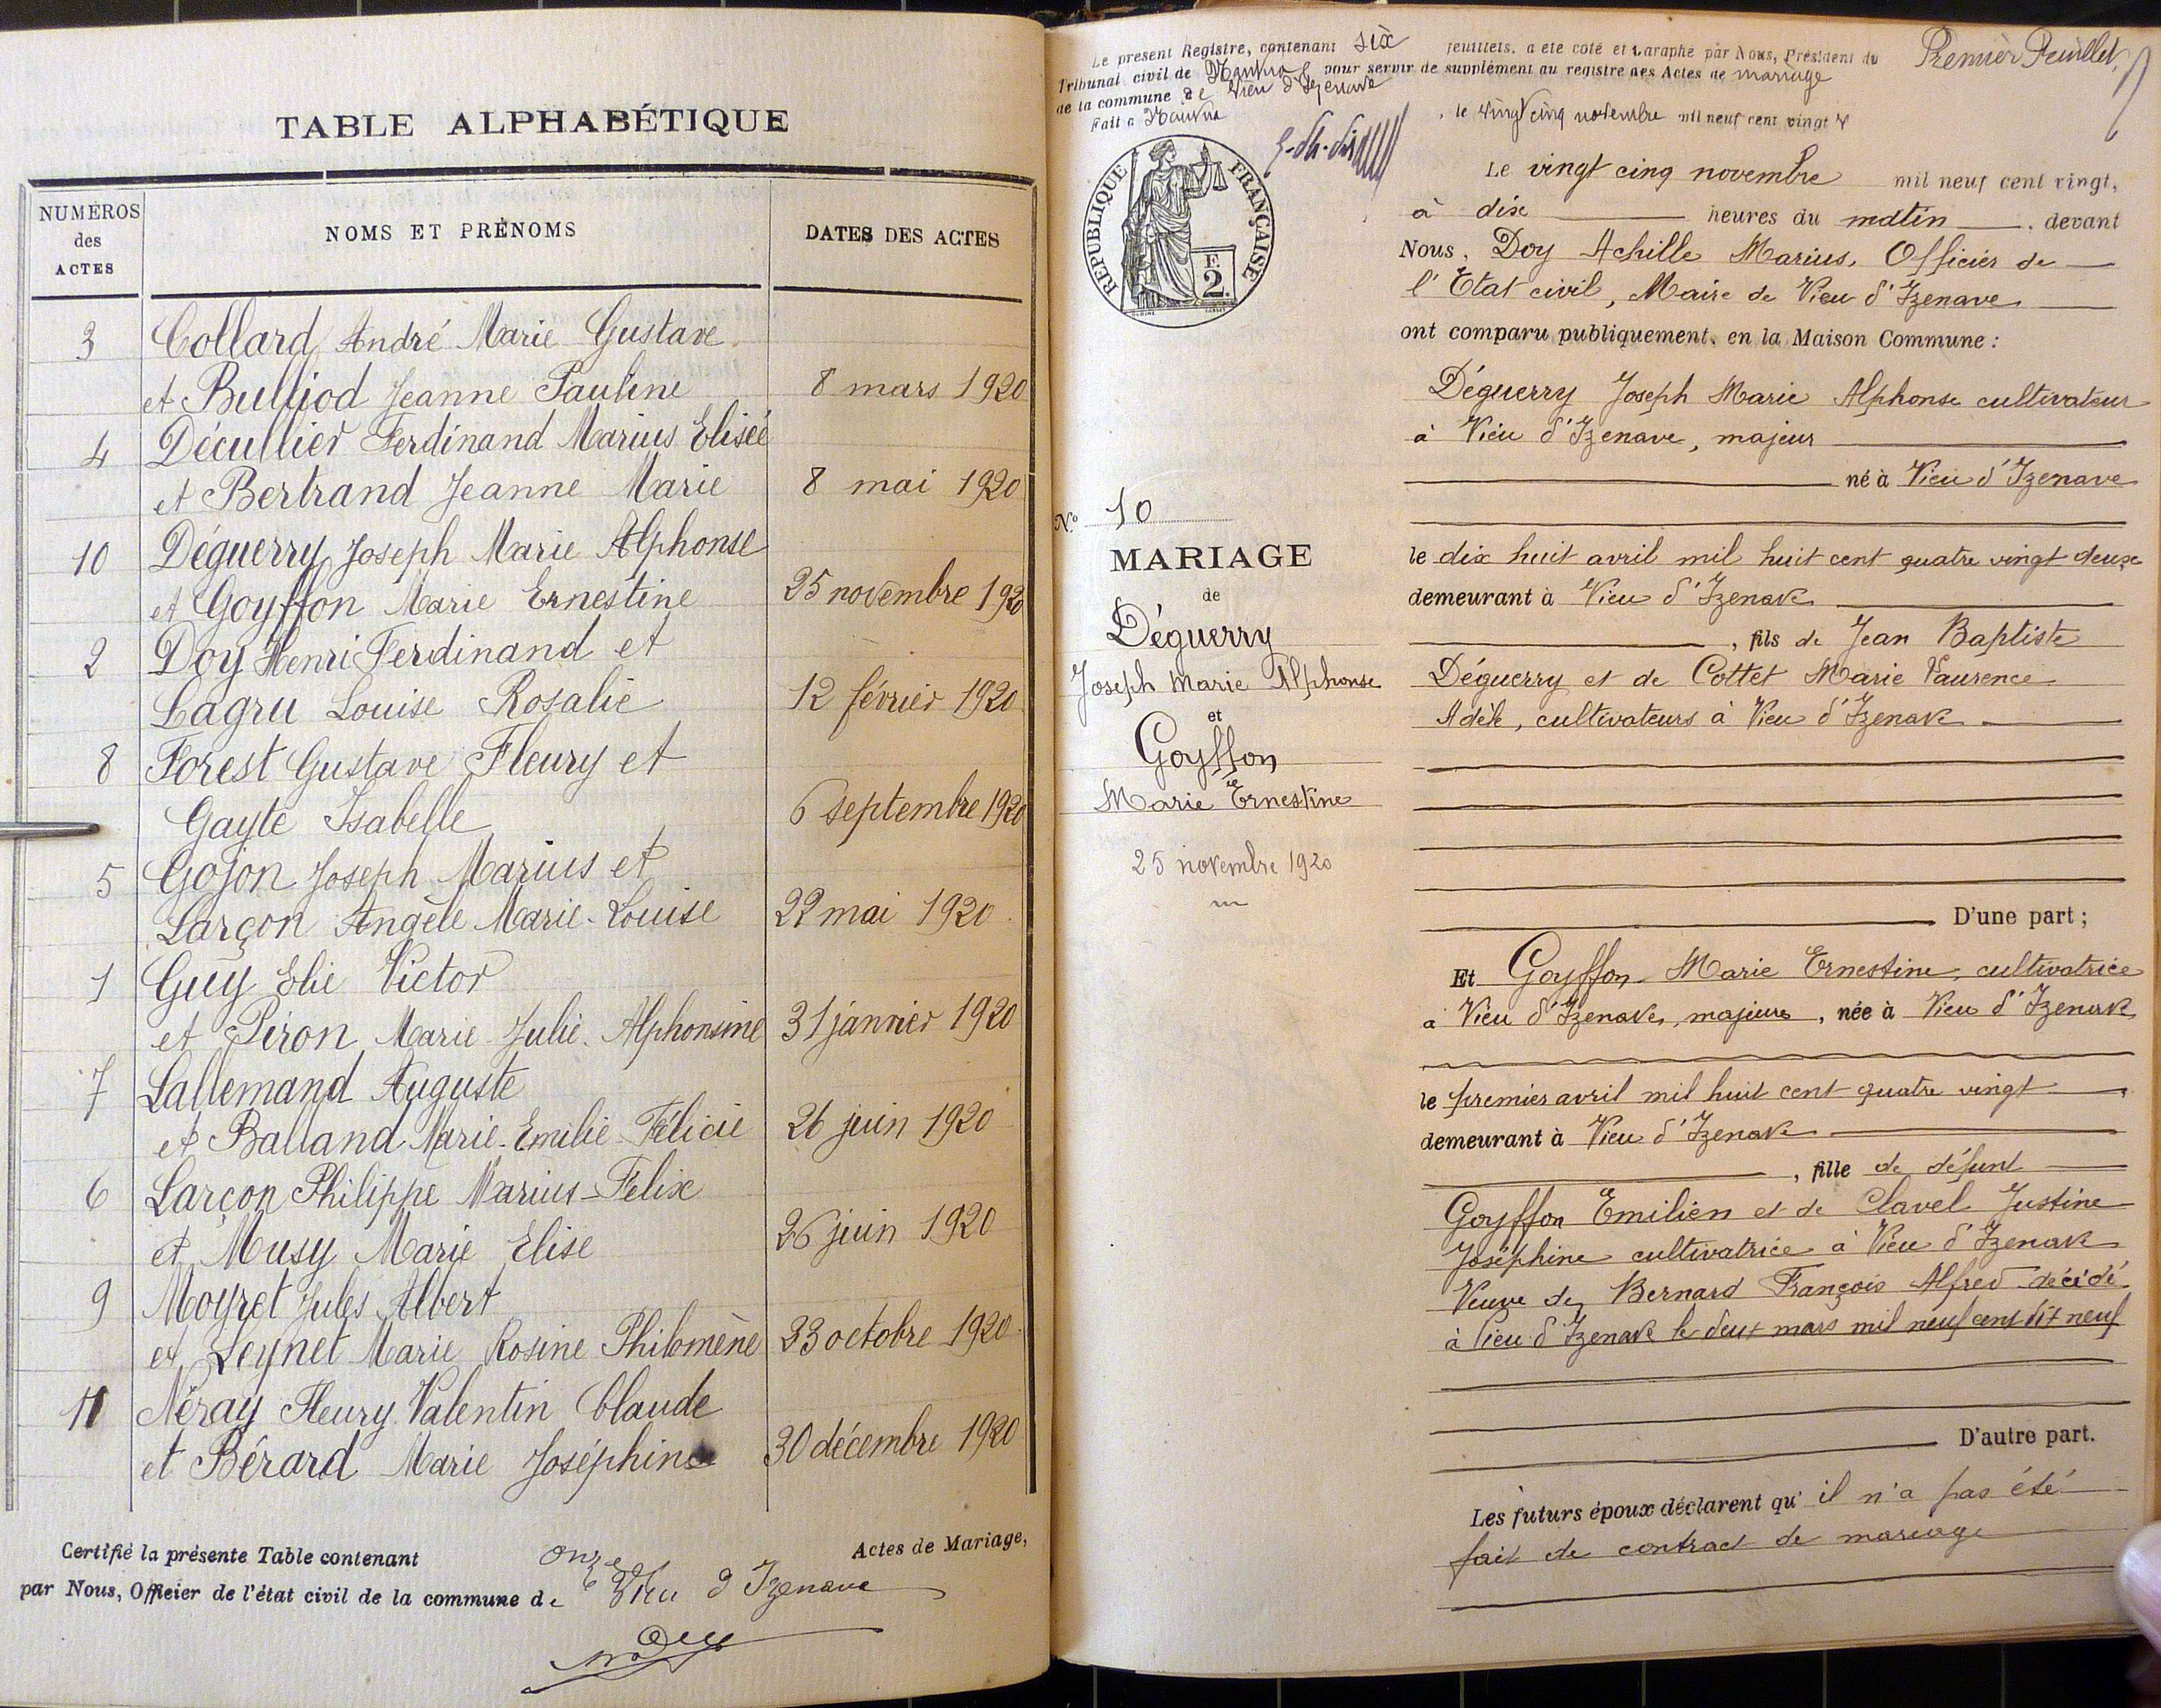 TABLE ALPHABÉTIQUE
NUMÉROS
des
ACTES
NOMS ET PRÉNOMS
DATES DES ACTES
3 Collard André Marie Gustave
et Bulliod Jeanne Pauline 8 mars 1920
4 Décullier Ferdinand Marius Elisée
et Bertrand Jeanne Marie 8 mai 1920
10 Déguerry Joseph Marie Alphonse
et Goyffon Marie Ernestine 25 novembre 1920
2 Doy Henri Ferdinand et
Lagru Louise Rosalie 12 février 1920
8 Forest Gustave Fleury et
Gayte Isabelle 6 septembre 1920
5 Gojon Joseph Marius et
Larçon Angèle Marie-Louise 22 mai 1920
1 Guy Elie Victor
et Piron Marie Julie Alphonsine 31 janvier 1920
7 Lallemand Auguste
et Balland Marie-Emilie-Félicie 26 juin 1920
6 Larçon Philippe Marius-Felix
et Musy Marie Elise 26 juin 1920
9 Moyret Jules Albert
et Leynet Marie Rosine Philomène 23 octobre 1920
11 Néray Fleury Valentin Claude
et Bérard Marie Joséphine 30 décembre 1920
Certifié la présente Table contenant onze Actes de Mariage,
par Nous, Officier de l'état civil de la commune de Vieu d'Izenave
Premier Feuillet
Le present Registre, contenant six feuillets, a été coté et paraphé par Nous, Président du
Tribunal civil de Nantua pour servir de supplément au registre des Actes de mariage
de la commune de Vieu d'Izenave
Fait à Nantua, le vingt cinq novembre mil neuf cent vingt
RÉPUBLIQUE FRANÇAISE
F.
2.
Le vingt cinq novembre mil neuf cent vingt,
à dix heures du matin, devant
Nous, Doy Achille Marius, Officier de
l'Etat civil, Maire de Vieu d'Izenave
ont comparu publiquement, en la Maison Commune :
Déguerry Joseph Marie Alphonse cultivateur
à Vieu d'Izenave, majeur
né à Vieu d'Izenave
No 10
MARIAGE
de
Déguerry
Joseph Marie Alphonse
et
Goyffon
Marie Ernestine
25 novembre 1920
le dix huit avril mil huit cent quatre vingt deux
demeurant à Vieu d'Izenave
, fils de Jean Baptiste
Déguerry et de Cottet Marie Laurence
Adèle, cultivateurs à Vieu d'Izenave
D'une part ;
Et Goyffon Marie Ernestine, cultivatrice
à Vieu d'Izenave, majeure, née à Vieu d'Izenave
le premier avril mil huit cent quatre vingt
demeurant à Vieu d'Izenave
, fille de défunt
Goyffon Emilien et de Clavel Justine
Joséphine cultivatrice à Vieu d'Izenave
Veuve de Bernard François Alfred décédé
à Vieu d'Izenave le deux mars mil neuf cent dix neuf
D'autre part.
Les futurs époux déclarent qu'il n'a pas été
fait de contract de mariage